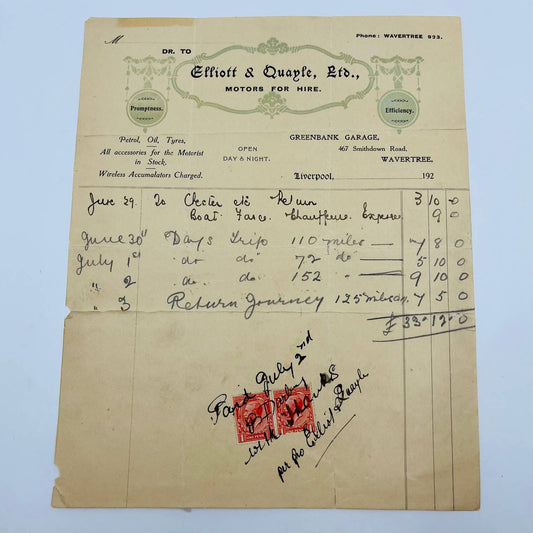 M
Phone: WAVERTREE 953.
DR. TO
Elliott & Quayle, Ltd.,
MOTORS FOR HIRE.
Promptness.
Efficiency.
Petrol, Oil, Tyres,
All accessories for the Motorist
in Stock.
Wireless Accumulators Charged.
OPEN
DAY & NIGHT.
GREENBANK GARAGE,
467 Smithdown Road,
WAVERTREE,
Liverpool, 192
June 29. To Chester etc Return 3 10 0
Boat Fare Chauffeurs Expense 9 0
June 30th Days Trip 110 miles — 7 8 0
July 1st do do 72 do — 5 10 0
" 2 do do 152 " — 9 10 0
" 3 Return Journey 125 miles 7 5 0
£ 33-12-0
Paid July 2nd
with thanks
per pro Elliott & Quayle